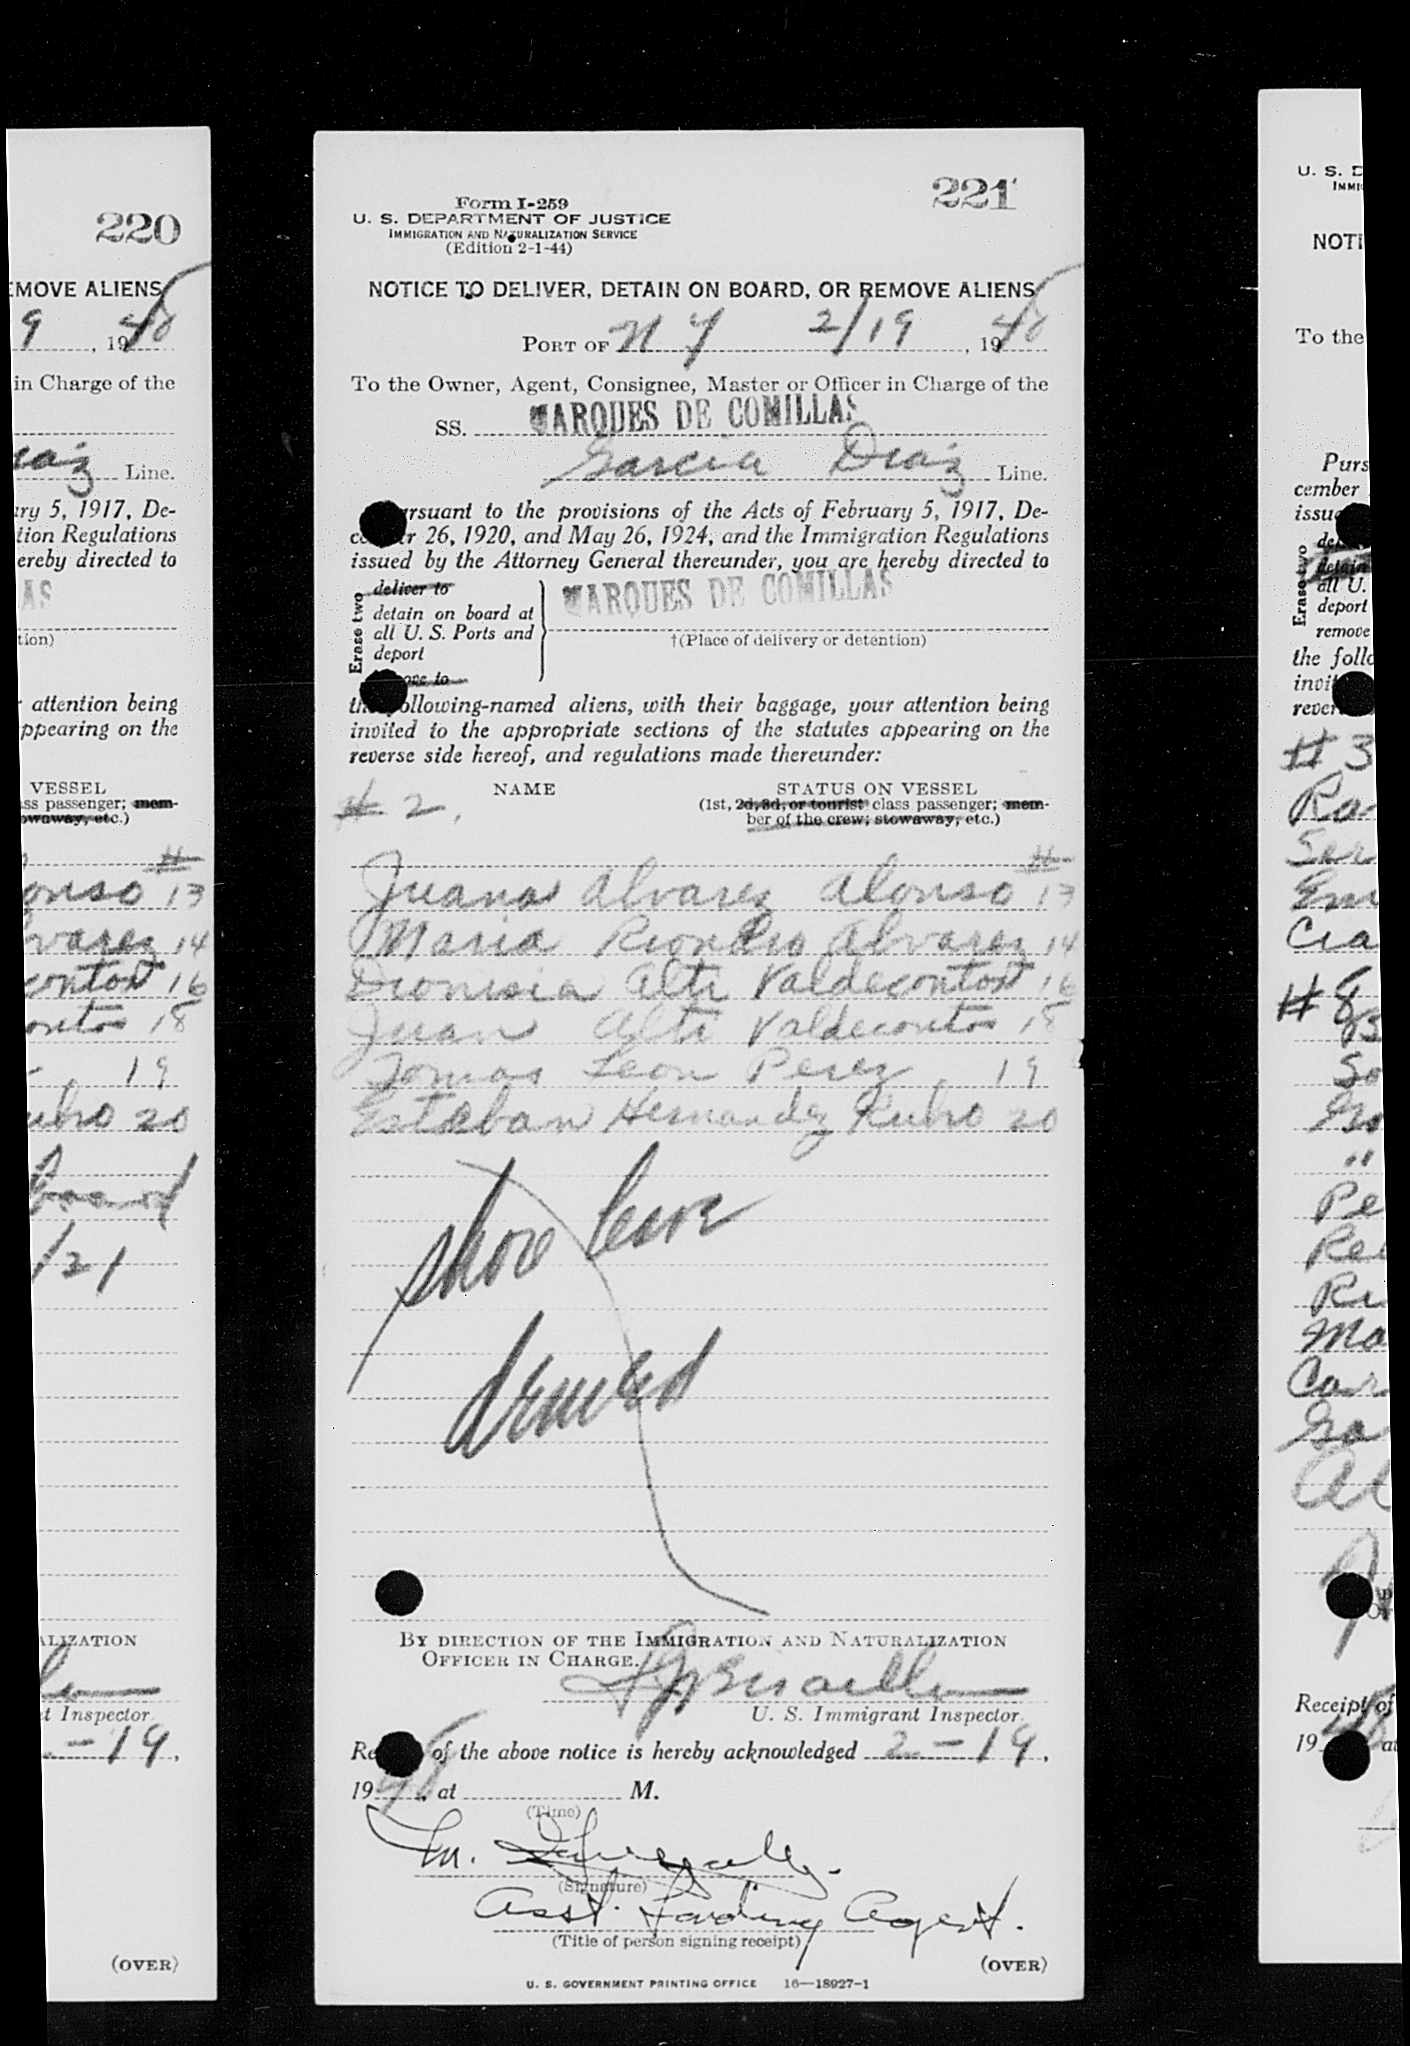 220
EMOVE ALIENS
9, 1948
in Charge of the
Diaz Line.
ry 5, 1917, De-
tion Regulations
ereby directed to
AS
tion)
r attention being
ppearing on the
VESSEL
ss passenger; mem-
owaway, etc.)
#
onso 13
varez 14
contos 16
ontos 18
19
20
board
/21
ALIZATION
t Inspector.
-19,
(OVER)
221
Form I-259
U. S. DEPARTMENT OF JUSTICE
IMMIGRATION AND NATURALIZATION SERVICE
(Edition 2-1-44)
NOTICE TO DELIVER, DETAIN ON BOARD, OR REMOVE ALIENS
PORT OF N Y 2/19, 1948
To the Owner, Agent, Consignee, Master or Officer in Charge of the
SS. MARQUES DE COMILLAS
Garcia Diaz Line.
Pursuant to the provisions of the Acts of February 5, 1917, De-
cember 26, 1920, and May 26, 1924, and the Immigration Regulations
issued by the Attorney General thereunder, you are hereby directed to
Erase two
deliver to
detain on board at
all U. S. Ports and
deport
remove to
MARQUES DE COMILLAS
†(Place of delivery or detention)
the following-named aliens, with their baggage, your attention being
invited to the appropriate sections of the statutes appearing on the
reverse side hereof, and regulations made thereunder:
NAME STATUS ON VESSEL
# 2. (1st, 2d, 3d, or tourist class passenger; mem-
ber of the crew; stowaway, etc.)
#
Juana Alvarez Alonso 13
Maria Alvarez 14
Dionisia Alti Valdecontos 16
Juan Alti Valdecontos 18
Tomas Leon Perez 19
Esteban Hernandez Rubio 20
shore leave
denied
BY DIRECTION OF THE IMMIGRATION AND NATURALIZATION
OFFICER IN CHARGE.
U. S. Immigrant Inspector.
Receipt of the above notice is hereby acknowledged 2-19,
1948, at M.
(Time)
(Signature)
Asst. Landing Agent.
(Title of person signing receipt)
(OVER)
U. S. GOVERNMENT PRINTING OFFICE 16—18927-1
U. S. D
IMMI
NOTI
To the
Purs
cember
issue
Erase two
detain
all U.
deport
remove
the follo
invit
rever
# 3
Ra
Ser
Em
Cia
# 8
So
"
Pe
Re
Ri
Ma
Car
Ga
Al
Receipt of
1948 at